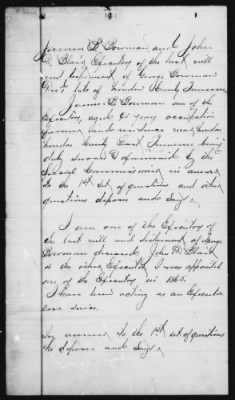 Bowman and John
Blair Executors of the last will
and testament of George Bowman
late of Loudon County Tennessee
James Bowman one of the
Executors, aged 41 years occupation
farmer and residence near Loudon
Loudon County East Tennessee being
duly sworn & examined by the
Special Commissioner in answer
to the 1st set of questions and other
questions deposes and says,
I am one of the Executors of
the last will and testament of George
Bowman deceased, John Blair
is the other Executor I was appointed
one of the Executors in
I have been acting as an Executor
ever since
In answer to the 1st set of questions
he deposes and says,